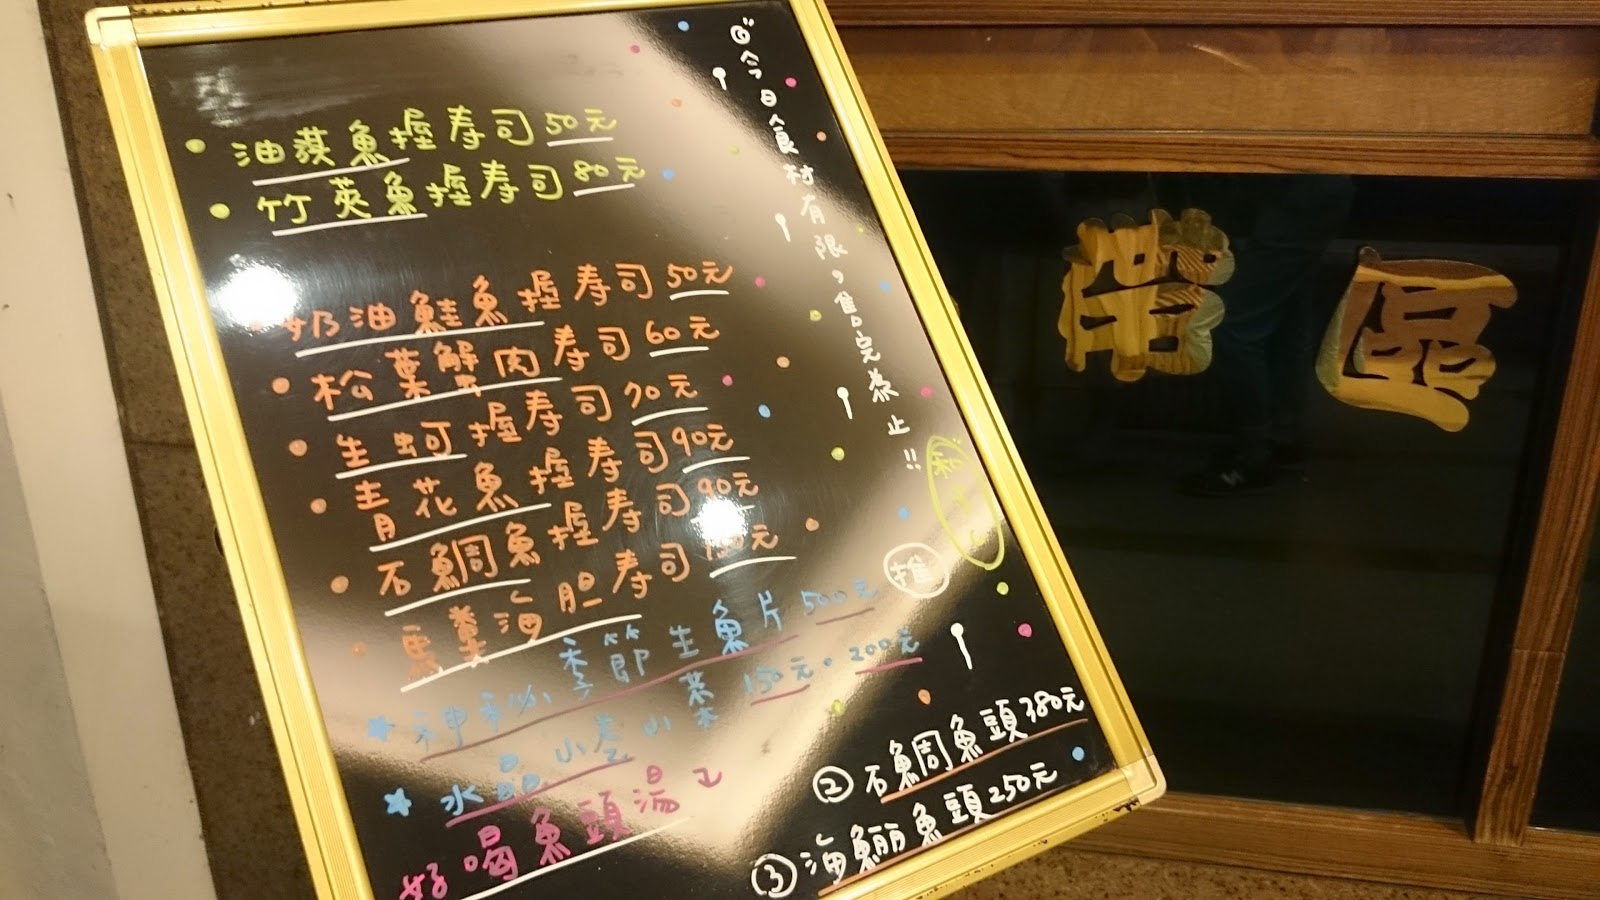 今日食材有限，售完為止!!
油蔴魚握寿司50元
竹莢魚握寿司80元
奶油鮭魚握寿司50元
松葉蟹肉寿司60元
生蚵握寿司70元
青花魚握寿司90元
石鯛魚握寿司90元
馬糞海胆寿司
神秘季節生魚片500元
推
水晶小卷小菜150元·200元
好喝魚頭湯
②石鯛魚頭380元
③海鱺魚頭250元
區